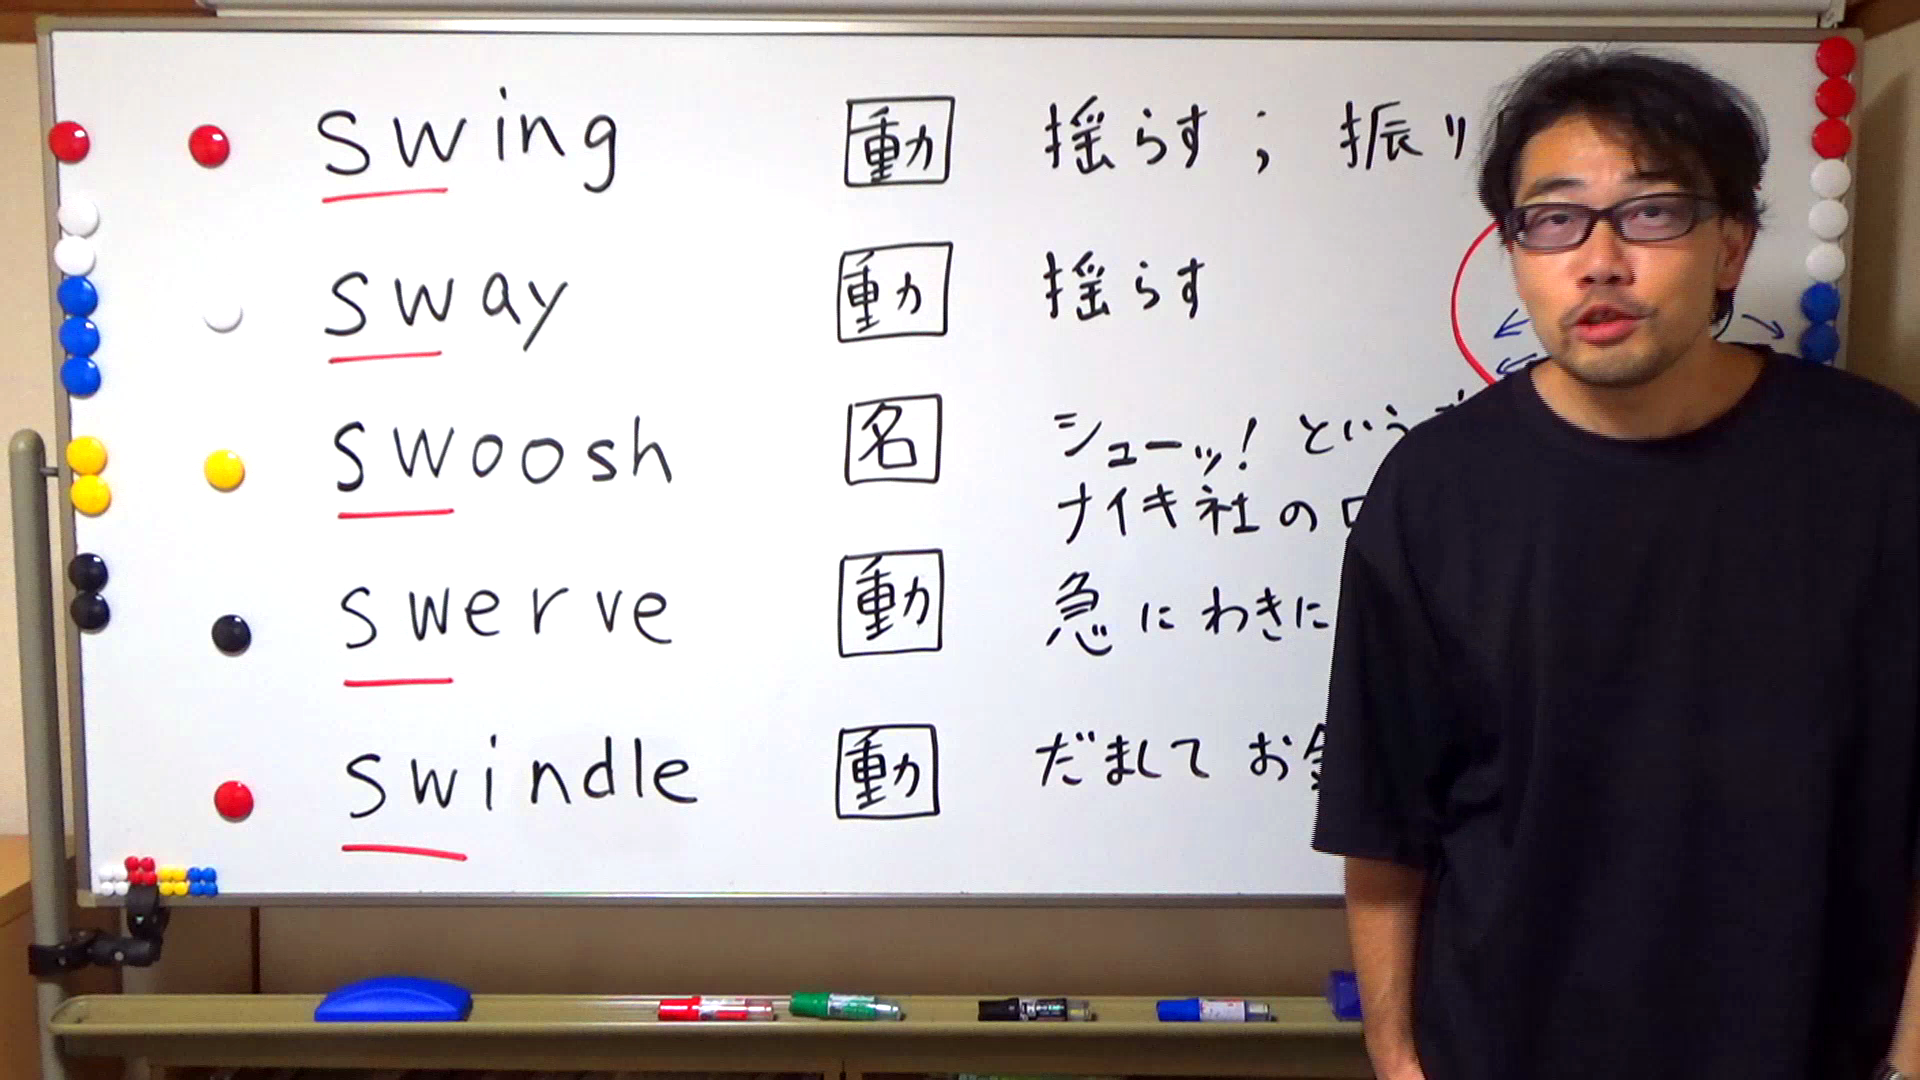 swing 動 揺らす ; 振り
sway 動 揺らす
swoosh 名 シューッ! という
ナイキ社の
swerve 動 急にわきに
swindle 動 だまして お